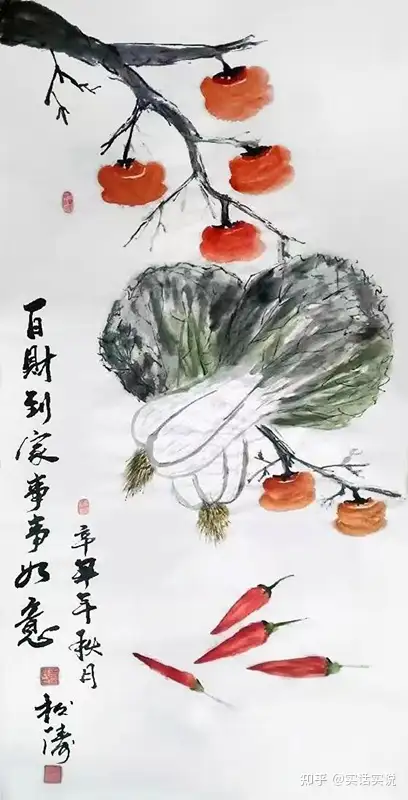 百財到家事事如意
辛丑年秋月
松濤
知乎 @实话实说